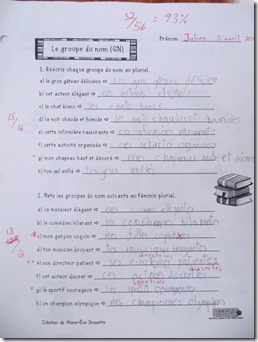 52/56 = 93%
Prénom: Julien 3 avril
Le groupe du nom (GN)
1. Réécris chaque groupe du nom au pluriel.
a) le gros gâteau délicieux ⇨ les gros gâteaux délicieux
b) cet acteur élégant ⇨ ces acteurs élégants
c) le chat blanc ⇨ les chats blancs
d) la nuit chaude et humide ⇨ les nuits chaudes et humides
e) cette infirmière rassurante ⇨ ces infirmières rassurantes
f) cette activité organisée ⇨ ces activités organisées
g) mon chapeau haut et décoré ⇨ mes chapeaux haut et décorés
h) ton œil enflé ⇨ tes yeux enflés
15/16
2. Mets les groupes du nom suivants au féminin pluriel.
a) ce monsieur élégant ⇨ ces élégantes
b) le comédien hilarant ⇨ les comédiennes hilarantes
c) mon garçon coquin ⇨ mes filles
d) ton musicien bruyant ⇨ tes musiciennes bruyantes
e) son directeur patient ⇨ ses patientes
directrices
f) cet acteur discret ⇨ ces actrices discrètes
discrètes
g) le sportif courageux ⇨ les
sportives
h) un champion olympique ⇨ des championnes olympiques
13/16
Création de Marie-Ève Brossette